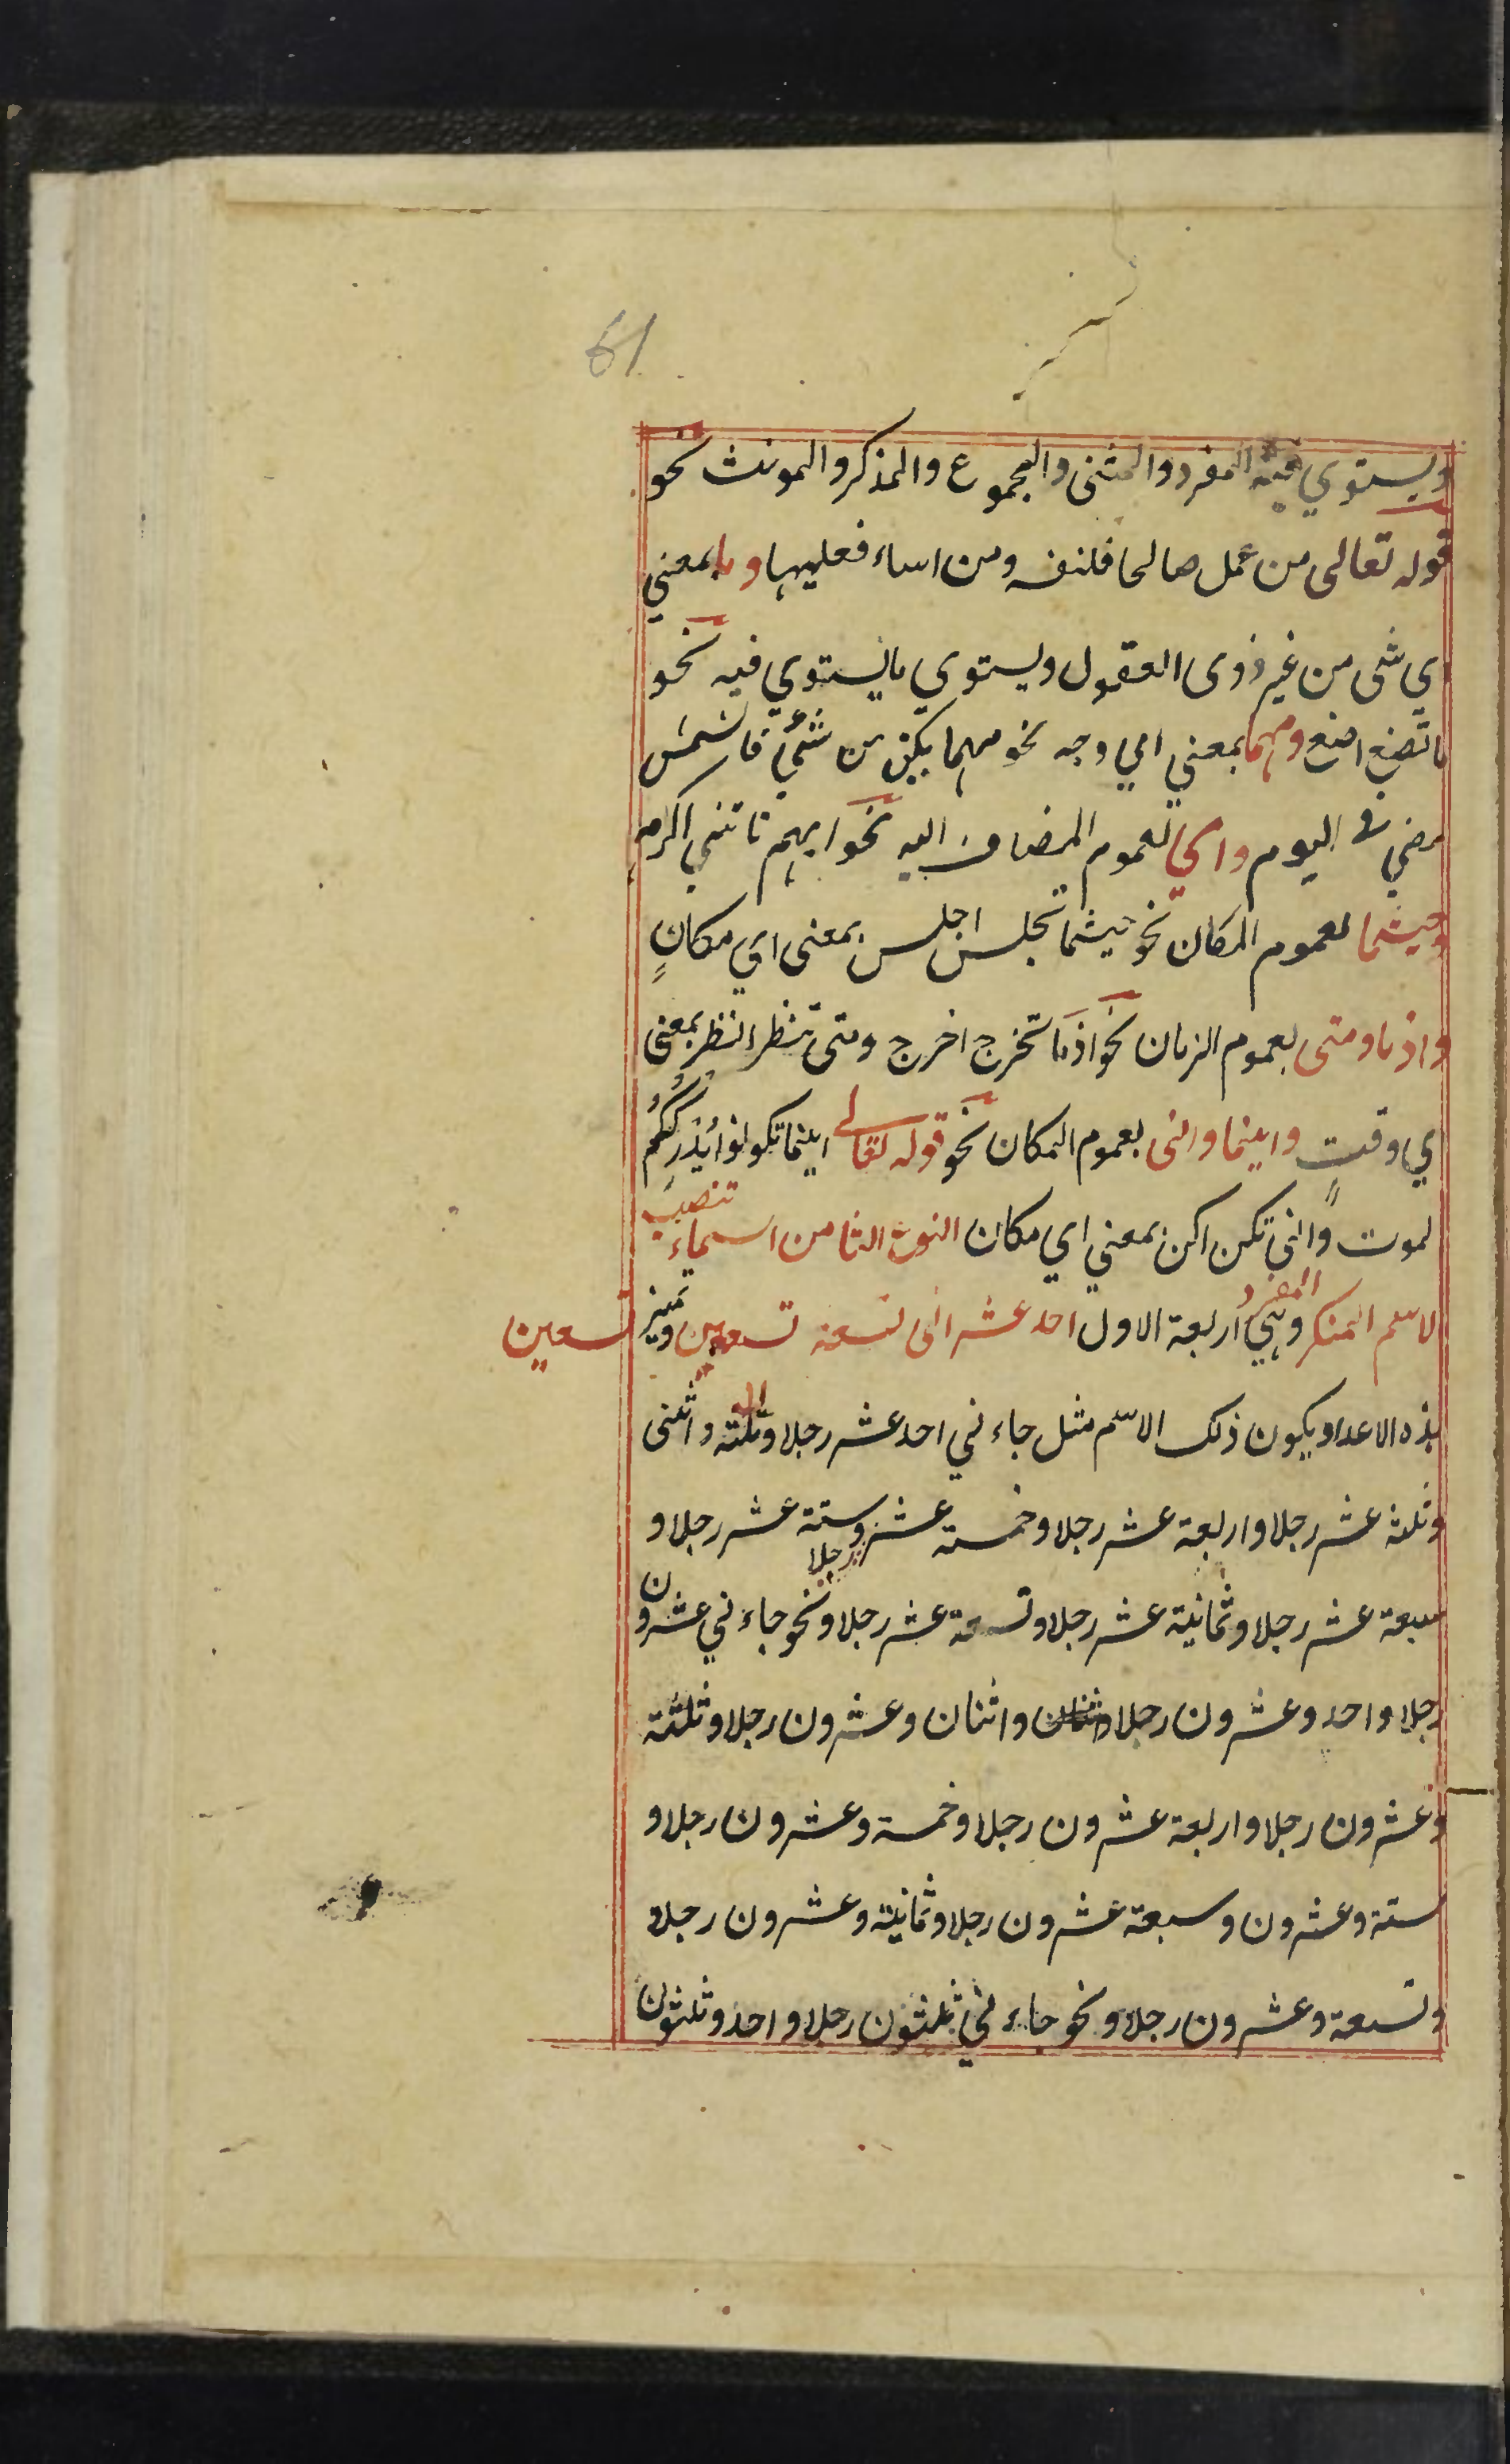 61
ويستوي فيه المفرد والمثنى والمجموع والمذكر والمونث نحو
قوله تعالى من عمل صالحا فلنفسه ومن اساء فعليها وما بمعني
اي شى من غير ذوى العقول ويستوي ما يستوي فيه نحو
ما تصنع اصنع ومهما بمعني اي وجه نحو مهما يكن من شئ فالشمس
مضي فى اليوم واي لعموم المضاف اليه نحو ايهم تاتني اكرمه
وحيثما لعموم المكان نحو حيثما تجلس اجلس بمعنى اي مكانٍ
واذ ما ومتى لعموم الزمان نحو اذ ما تخرج اخرج ومتى تنظر انظر بمعنى
اي وقتٍ واينما وانى لعموم المكان نحو قوله تعالى اينما تكونوا يُدْرِكْكُمُ
الموت وانى تكن اكن بمعني اي مكان النوع الثامن اسماء تنصب
الاسم المنكر المفرد وهي اربعة الاول احد عشر الى تسعة تسعين وتميز تسعين
هذه الاعداد يكون ذلك الاسم مثل جاءني احد عشر رجلا وثلثة واثنى
وثلثة عشر رجلا واربعة عشر رجلا وخمسة عشر رجلا وستة عشر رجلا و
سبعة عشر رجلا وثمانية عشر رجلا وتسعة عشر رجلا ونحو جاءني عشرون
رجلا واحد وعشرون رجلا واثنان وعشرون رجلا وثلثة
وعشرون رجلا واربعة عشرون رجلا وخمسة وعشرون رجلا و
ستة وعشرون وسبعة عشرون رجلا وثمانية وعشرون رجلا
وتسعة وعشرون رجلا ونحو جاءني ثلثون رجلا واحد وثلثون